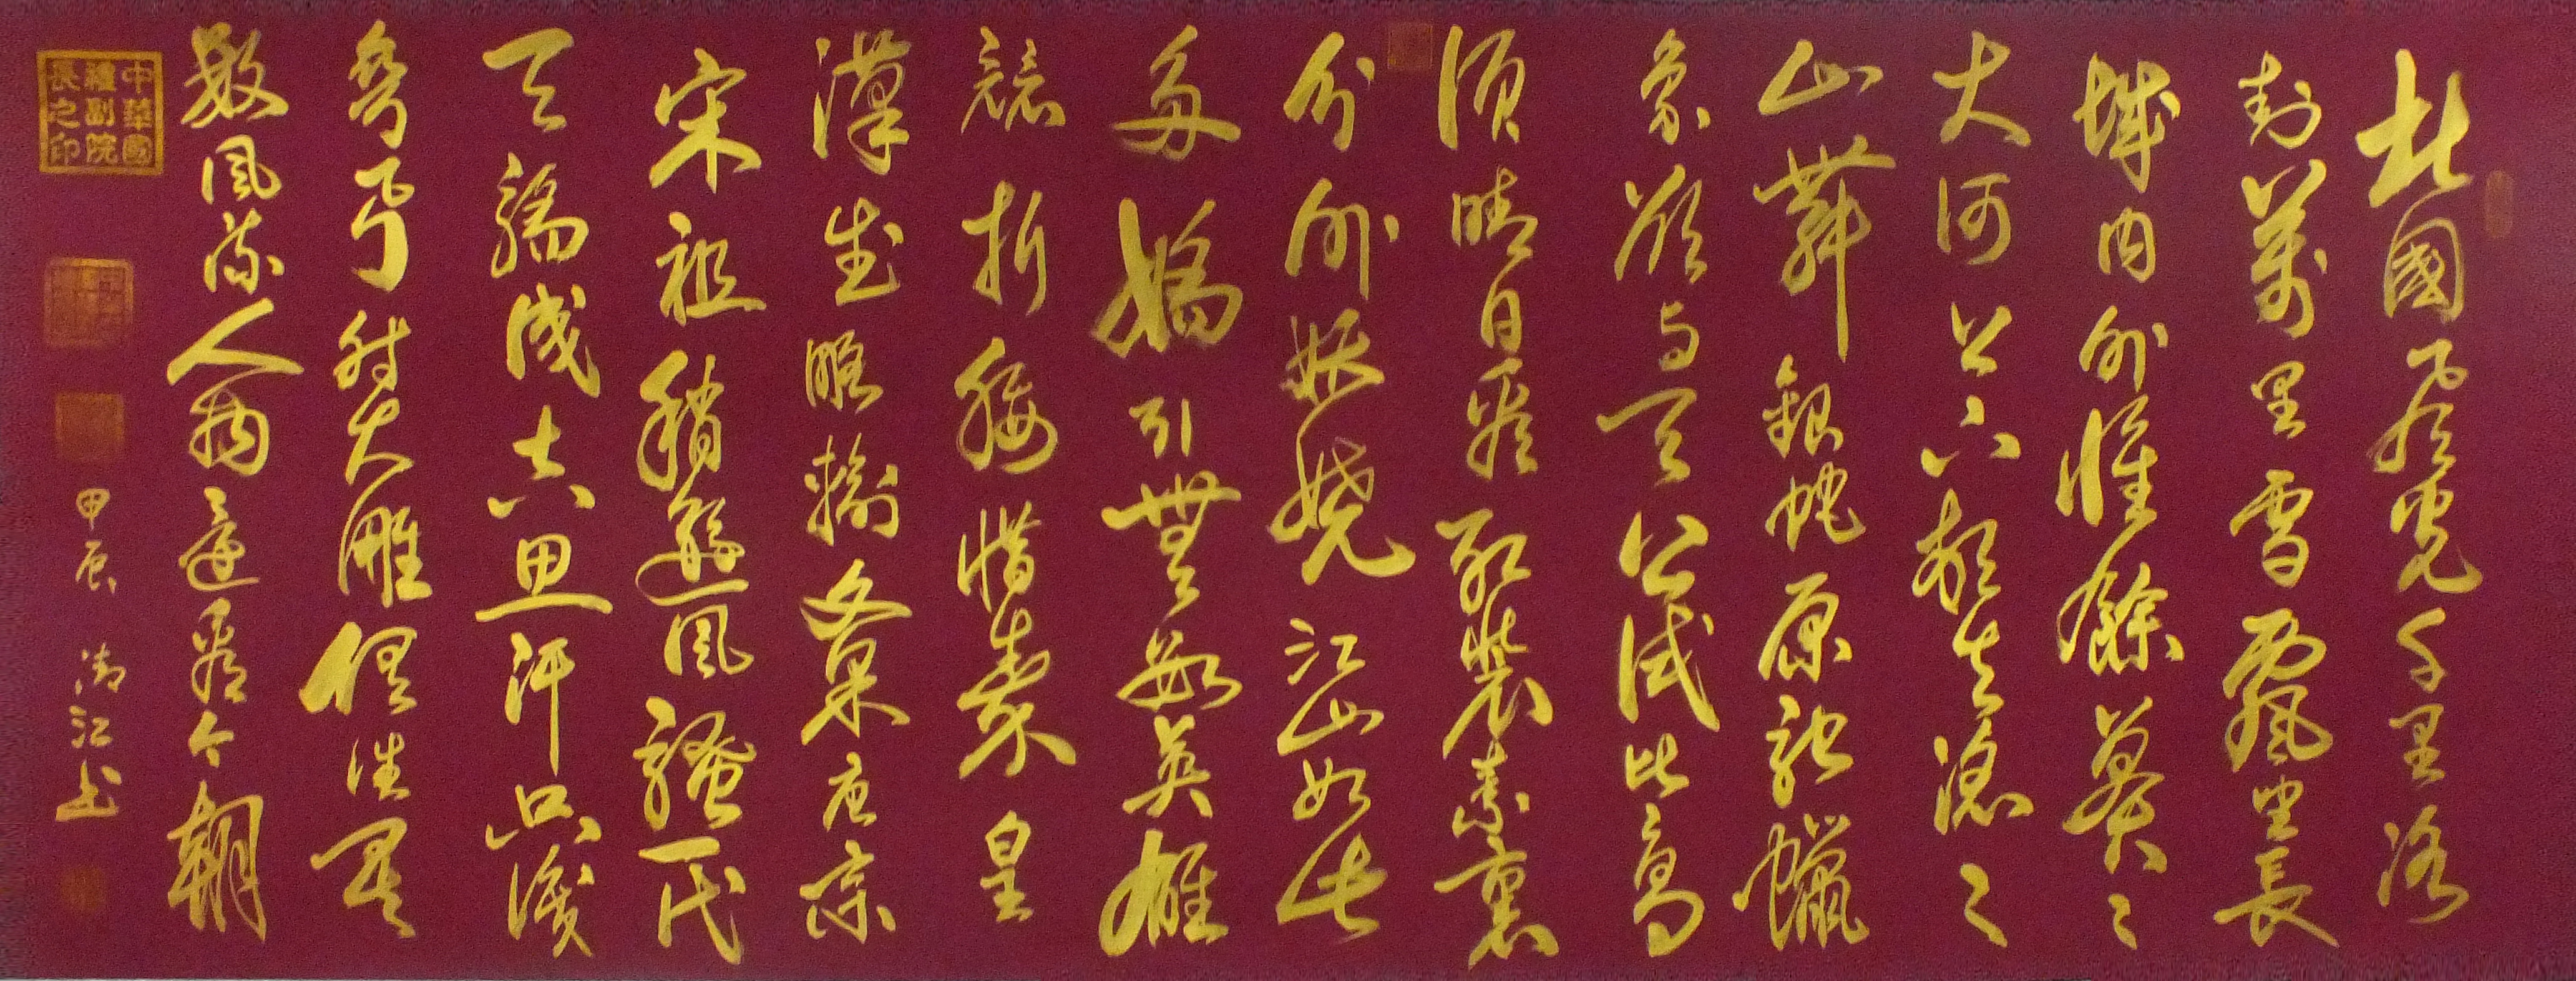 北國風光千里冰
封萬里雪飄望長
城內外惟餘莽々
大河上下頓失滔々
山舞銀蛇原馳蠟
象欲与天公試比高
須晴日看紅裝素裹
分外妖嬈江山如此
多嬌引無數英雄
競折腰惜秦皇
漢武略輸文采唐宗
宋祖稍遜風騷一代
天驕成吉思汗只識
彎弓射大雕俱往矣
數風流人物還看今朝
中華國
禮副院
長之印
甲辰 江书